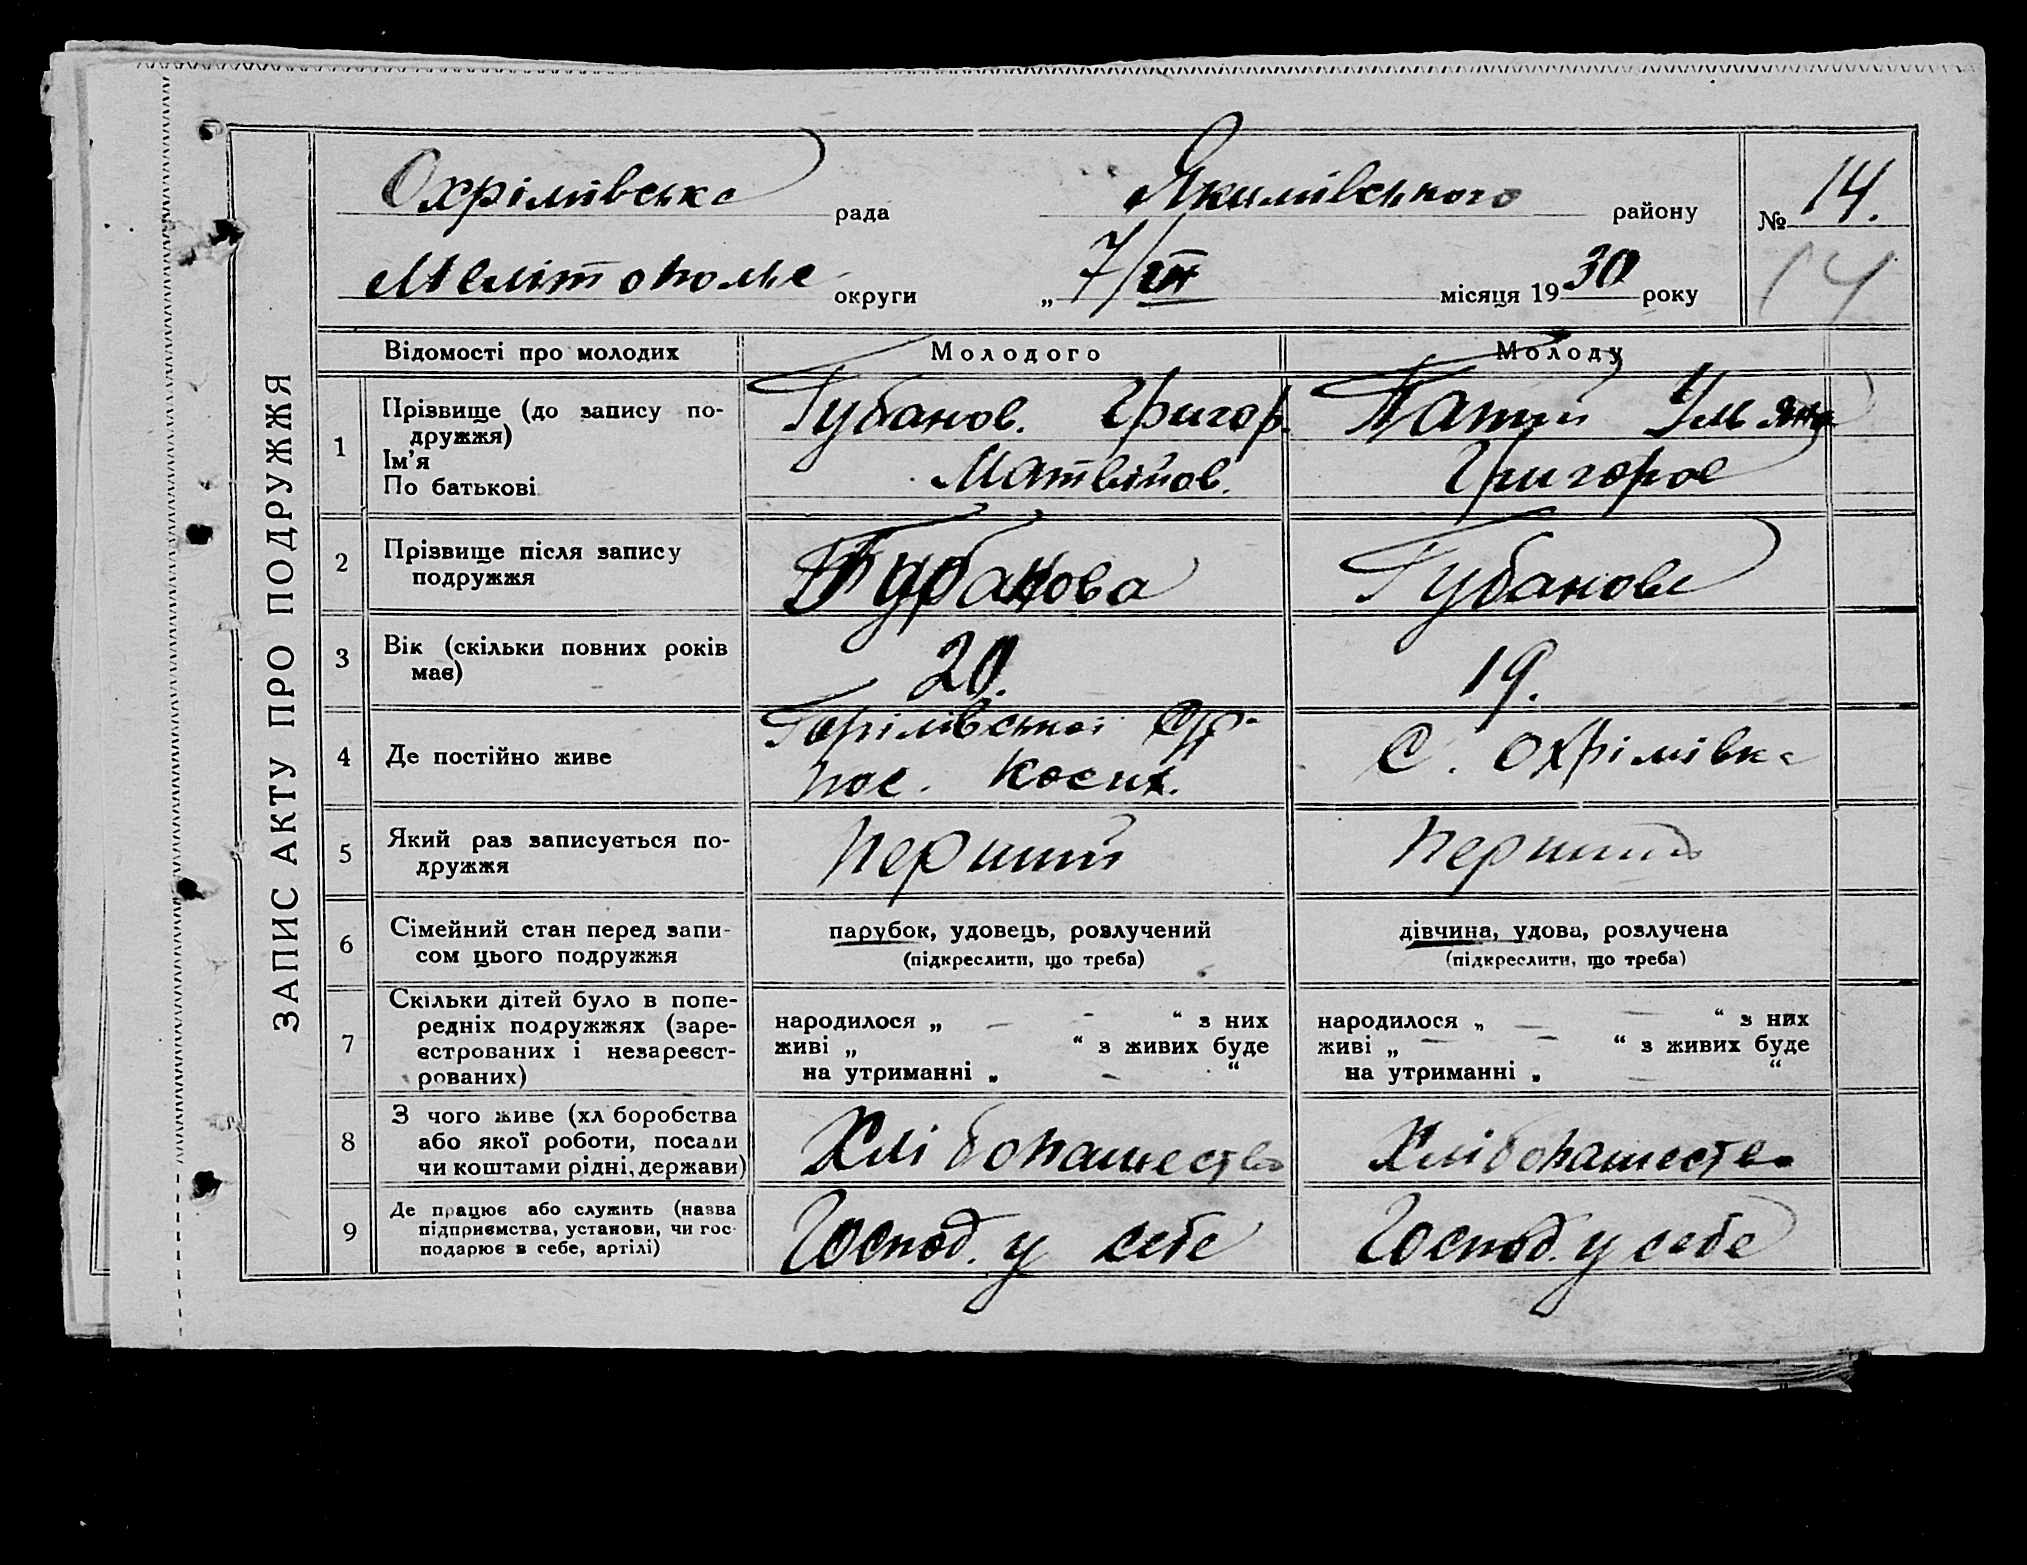 ЗАПИС АКТУ ПРО ПОДРУЖЖЯ
Охрімівська рада Якимівського району № 14.
Мелітополье округи „ 7/III місяця 1930 року 14
Відомості про молодих Молодого Молоду
1 Прізвище (до запису по-
дружжя)
Ім’я
По батькові
Губанов. Григор.
Матвійов.
Патий Ульяна
Григоров
2 Прізвище після запису
подружжя
Губанова
Губанова
3 Вік (скільки повних років
має)
20.
19.
4 Де постійно живе
с/р
пос.
С. Охрімівка
5 Який раз записується по-
дружжя
перший
перший
6 Сімейний стан перед запи-
сом цього подружжя
парубок, удовець, розлучений
(підкреслити, що треба)
дівчина, удова, розлучена
(підкреслити, що треба)
7 Скільки дітей було в попе-
редніх подружжях (заре-
єстрованих і незареєст-
рованих)
народилося „ — - “ з них
живі „ “ з живих буде
на утриманні „ - “
народилося „ — — “ з них
живі „ — — “ з живих буде
на утриманні „ — “
8 З чого живе (хл боробства
або якої роботи, посади
чи коштами рідні, держави)
Хлібопашество
Хлібопашество
9 Де працює або служить (назва
підприємства, установи, чи гос-
подарює в себе, артілі)
Господ. у себе
Господ. у себе